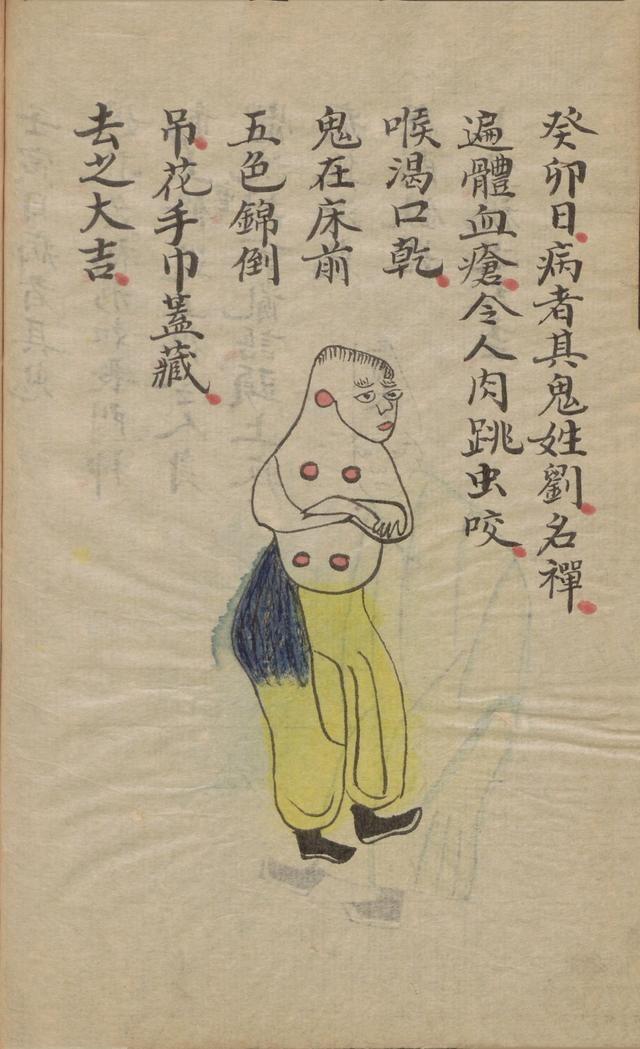 癸卯日病者其鬼姓劉名禪
遍體血瘡令人肉跳虫咬
喉渴口乾
鬼在床前
五色錦倒
吊花手巾蓋藏
去之大吉